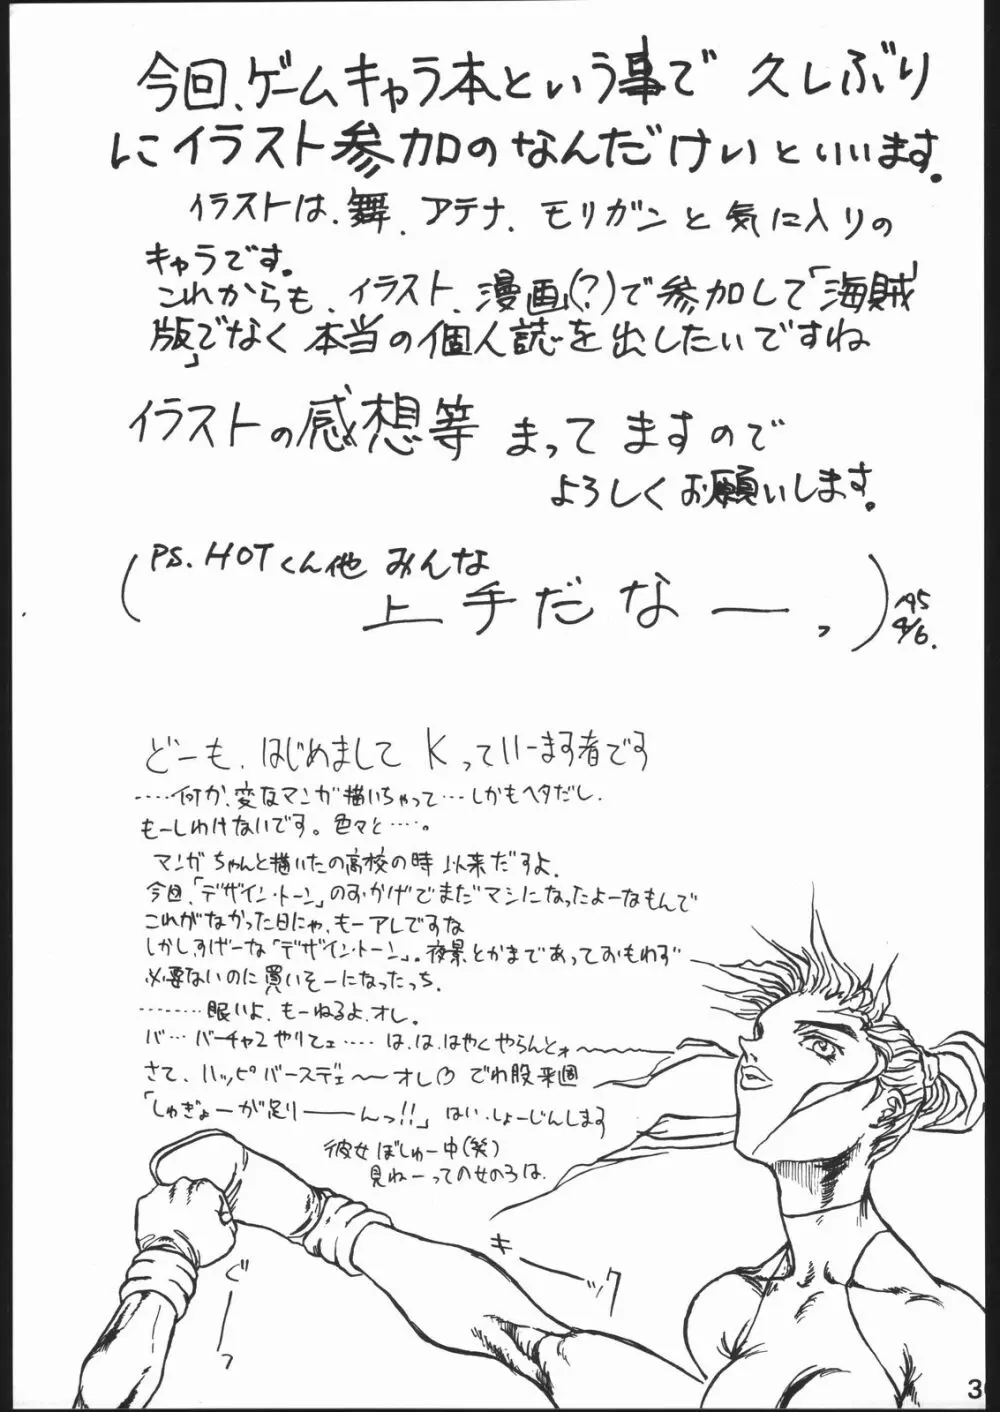 今回、ゲームキャラ本という事で 久しぶり
にイラスト参加のなんだけいといいます。
イラストは、舞、アテナ、モリガンと気に入りの
キャラです。
これからも、イラスト、漫画(?)で参加して「海賊
版」でなく本当の個人誌を出したいですね
イラストの感想等 まってますので
よろしくお願いします。
(PS. HOTくん他 みんな
上手だなーっ)
'95
4/6.
どーも、はじめまして Kっていーます者です
……何か、変なマンガ描いちゃって…しかもヘタだし、
もーしわけないです。色々と……。
マンガちゃんと描いたの高校の時以来だすよ、
今回、「デザイン・トーン」のおかげでまだマシになったよーなもんで
これがなかった日にゃ、もーアレですな
しかしすげーな「デザイン・トーン」。夜景とかまであっておもわず
必要ないのに買いそーになったっち、
………眠いよ、もーねるよ、オレ。
バ… バーチャ2やりてェ…… は、は、はやくやらんとォ〜
さて、ハッピバースデェ〜オレ♡ でわ股来週
「しゅぎょーが足りーーんっ!!」 はい、しょーじんします
彼女ぼしゅー中(笑)
見ねーっての女のろは、
キ
ック
ぐーっ
3